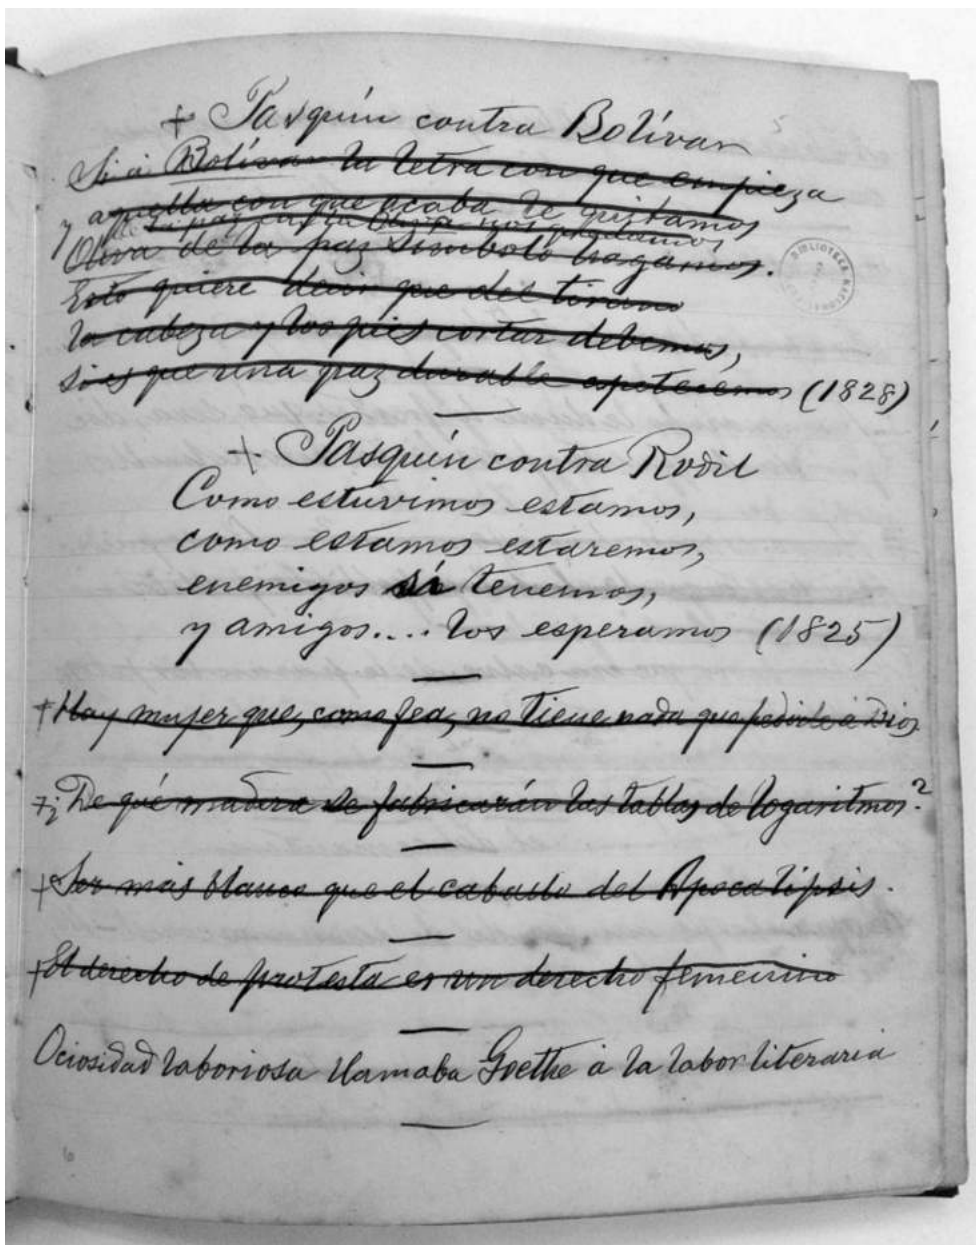 + Pasquín contra Bolívar
Si á Bolívar la letra con que empieza
y aquella con que acaba le quitamos
de la paz la Oliva nos quedamos
Oliva de la paz símbolo hagamos.
Esto quiere decir que del tirano
la cabeza y los pies cortar debemos,
si es que una paz durable apetecemos (1828)
+ Pasquín contra Rodil
Como estuvimos estamos,
como estamos estaremos,
enemigos sí tenemos,
y amigos.... los esperamos (1825)
+ Hay mujer que, como fea, no tiene nada que pedirle á Dios
+ ¿De qué madera se fabricarán las tablas de logaritmos?
+ Ser más blanco que el caballo del Apocalipsis.
+ El derecho de protesta es un derecho femenino
Ociosidad laboriosa llamaba Goethe á la labor literaria
BIBLIOTECA NACIONAL
6
5